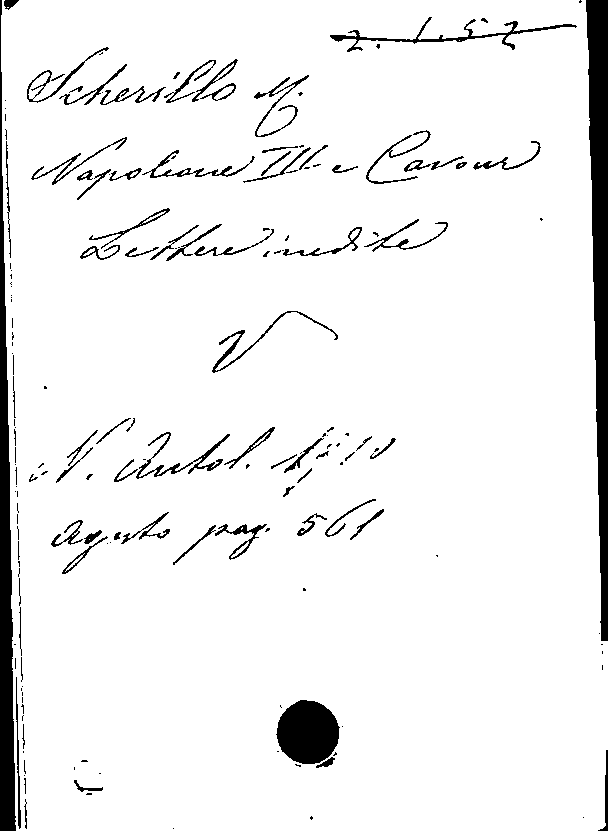 2. 1. 52
Scherillo M.
Napoleone III e Cavour
Lettere inedite
V
N. Antol.
Agosto pag. 561